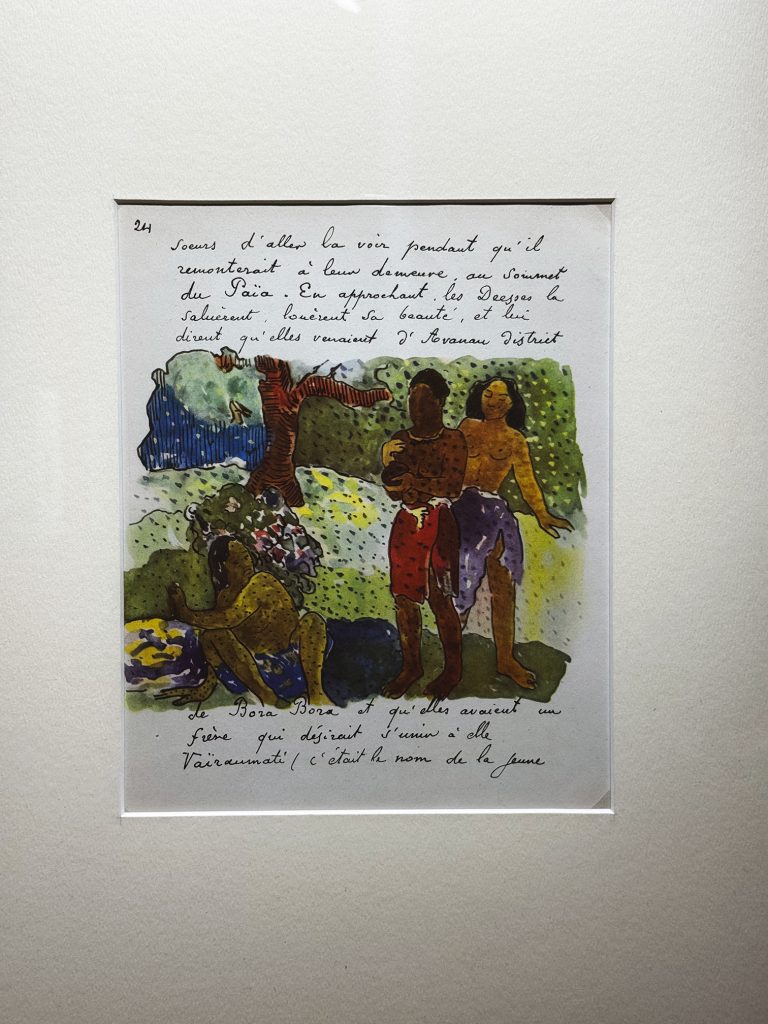 24
soeurs d'aller la voir pendant qu'il
remonterait à leur demeure, au sommet
du Païa. En approchant, les Deesses la
saluèrent, louèrent sa beauté, et lui
dirent qu'elles venaient d'Avanau district
de Bora Bora et qu'elles avaient un
frère qui désirait s'unir à elle
Vaïraumati (c'était le nom de la jeune